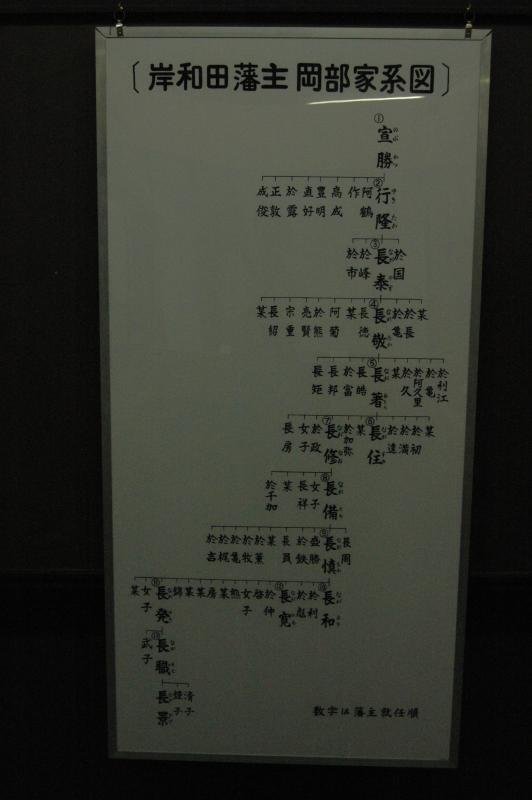 〔岸和田藩主 岡部家系図〕
①宣勝
②行隆
阿鶴 作 高成 豊明 直好 於露 正敦 成俊
於国 ③長泰 於峰 於市
某 於長 於亀 ④長敬 長徳 某 阿菊 於熊 亮賢 宗重 長紹 某
於利江 於亀 於阿久里 於久 某 ⑤長著 長皓 於富 長邦 長矩
某 於初 於満 於達 ⑥長住 某 於加弥 ⑦長修 於政 女子 長房
⑧長備 女子 長祥 某 於千加
長周 ⑨長慎 盛勝 於鉄 長員 某 於薫 於牧 於亀 於梶 於吉
⑩長和 於利 於彪 ⑪長寛 於仲 啓 女子 熊 某 房 某 某 錦 ⑫長発 女子 某
⑬長職 武子
清子 錏子 長景
数字は藩主就任順